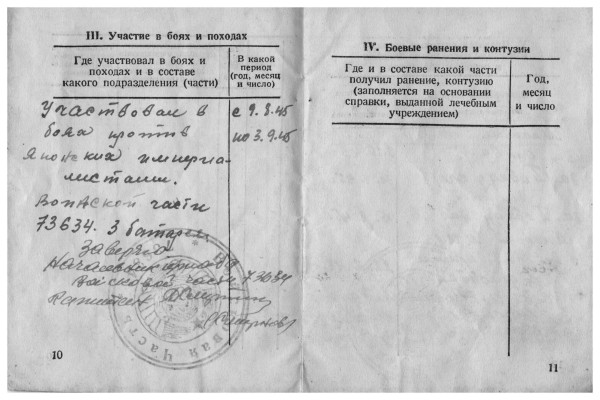 III. Участие в боях и походах
Где участвовал в боях и
походах и в составе
какого подразделения (части)
В какой
период
(год, месяц
и число)
Участвовал в
боях против
Японских империа-
листами.
с 9.8.45
по 3.9.45
Воинской части
73634. 3 батареи
Заверяю
Начальник штаба
Войсковой части 73634
Капитан
10
IV. Боевые ранения и контузии
Где и в составе какой части
получил ранение, контузию
(заполняется на основании
справки, выданной лечебным
учреждением)
Год,
месяц
и число
11